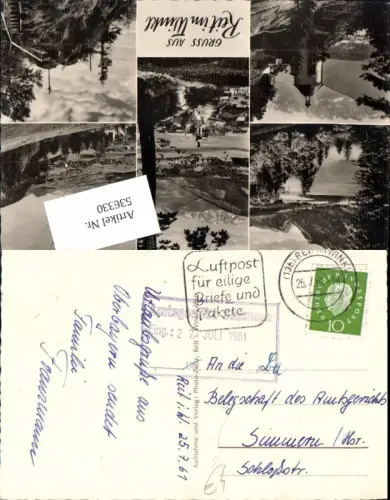 GRUSS AUS
Reit im Winkl
Artikel Nr.
536330
Luftpost
für eilige
Briefe und
Pakete
(13b) REIT IM WINKL
25.7.
DEUTSCHE BUNDESPOST
10
JULI 1961
Aufnahme und Verlag: Photo
Urlaubsgrüße aus
Oberbayern sendet
Familie
Reit i. W. 25.7.61
An die
Belegschaft des Amtsgericht
Simmern / Hsr.
Schloßstr.